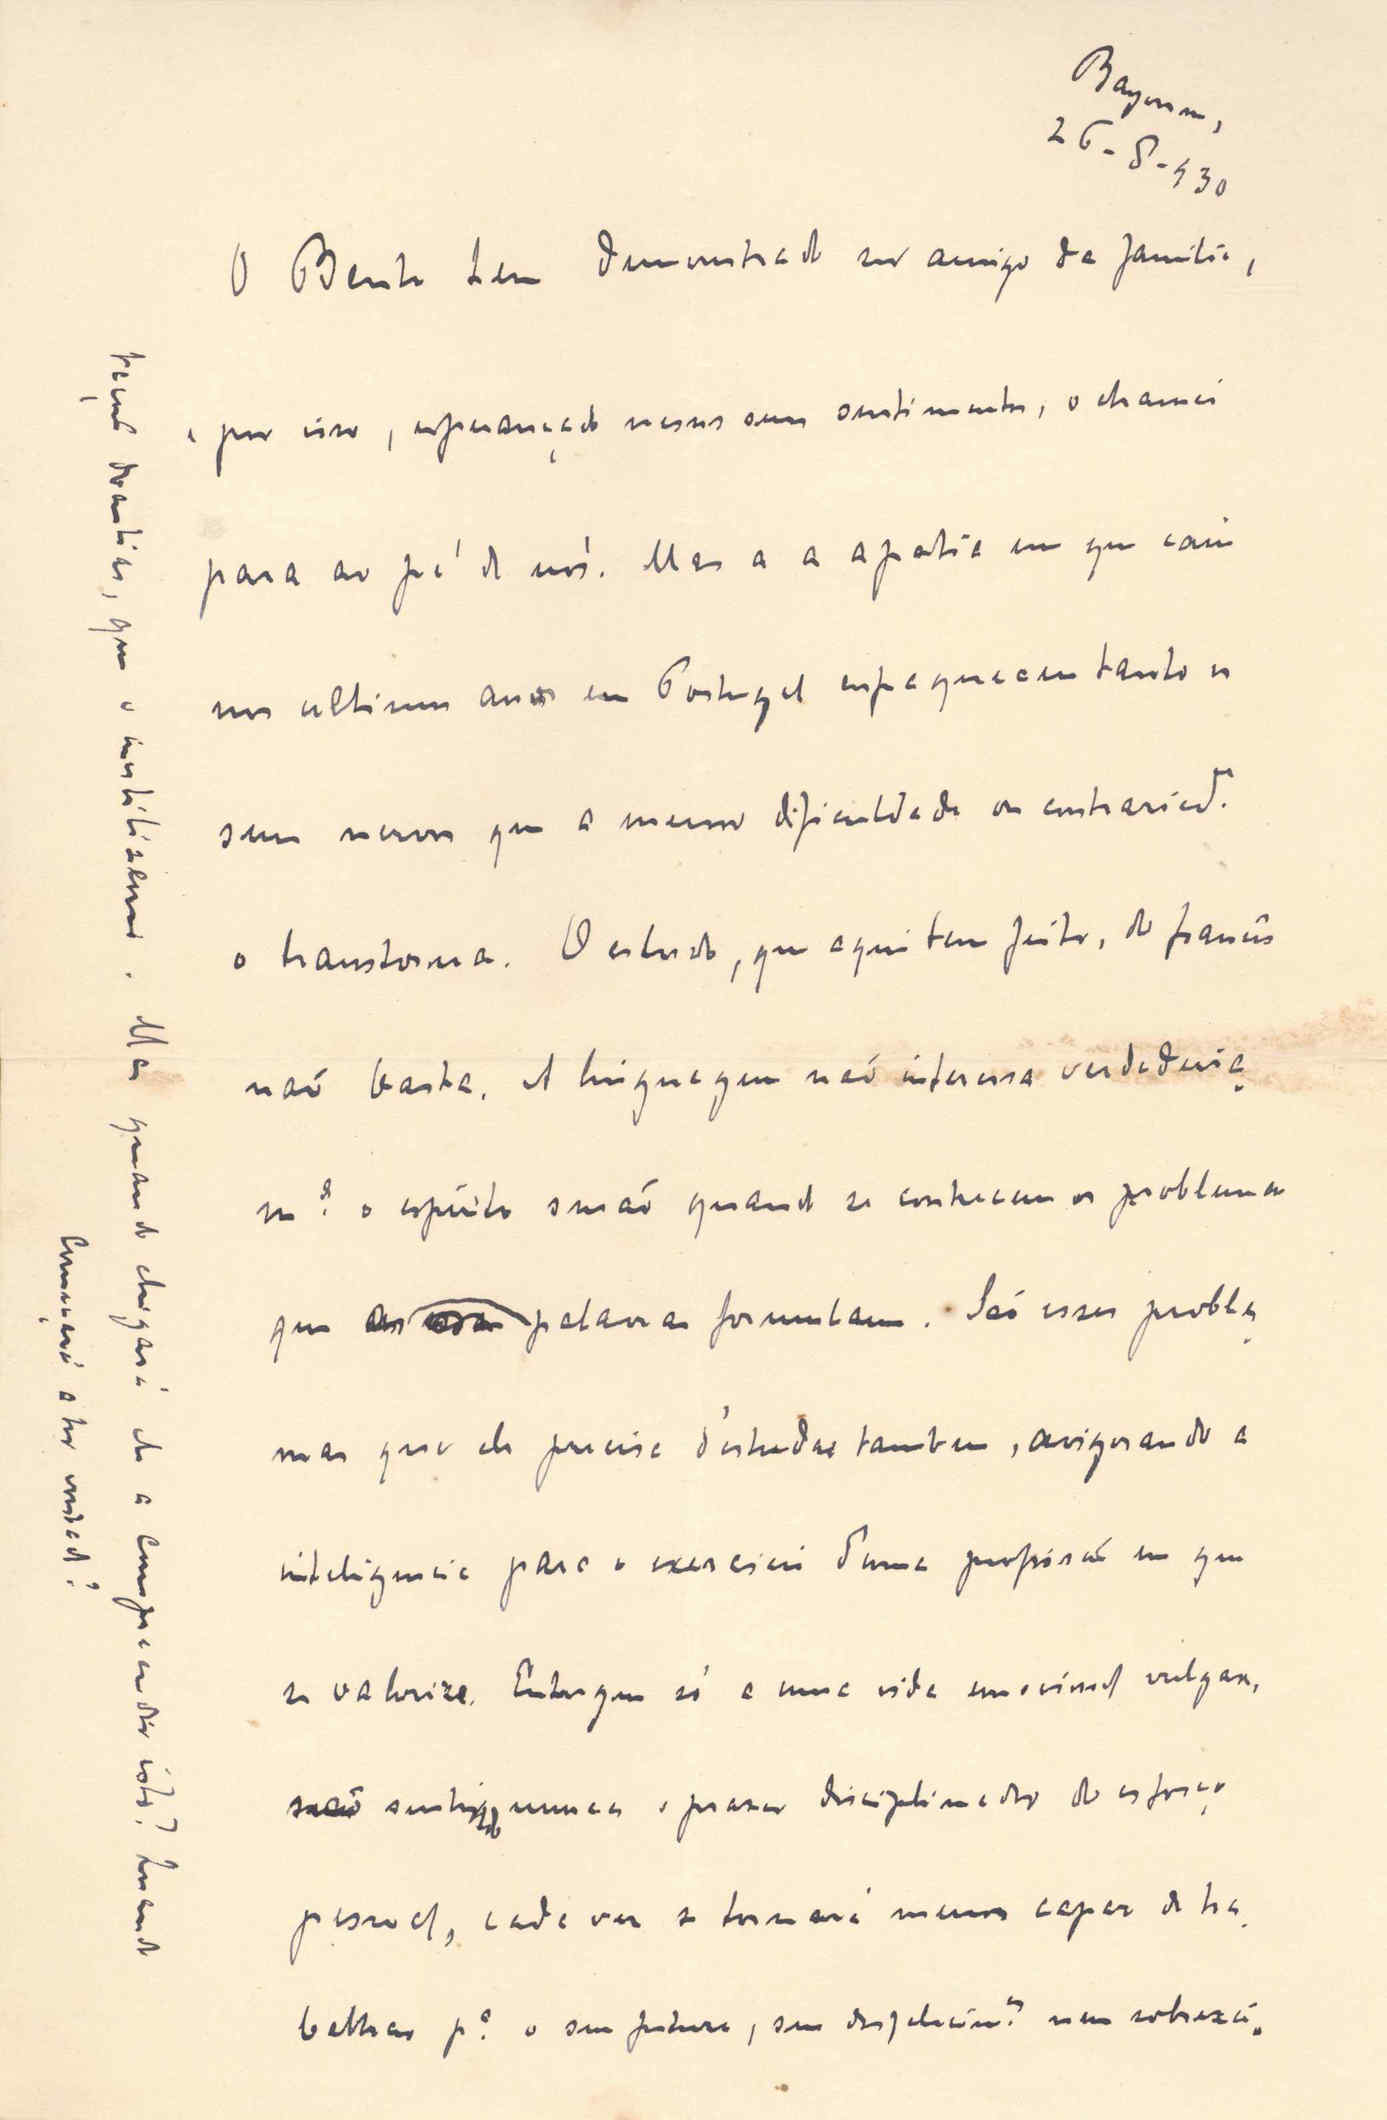 Bayonne,
26-8-930
O Bento tem demonstrado ser amigo da familia,
e por isso, esperançado nesses seus sentimentos, o chamei
para ao pé de nós. Mas a a apatia em que caiu
nos ultimos anos em Portugal enfraqueceu tanto os
seus nervos que a menor dificuldade ou contraried.e
o transtorna. O estudo, que aqui tem feito, do francês
não basta. A linguagem não interessa verdadeira
m.te o espirito senão quando se conhecem os problemas
que as palavras formulam. São esses proble
mas que ele precisa d'estudar tambem, avigorando a
inteligencia para o exercicio d'uma profissão em que
se valorize. Entregue só a uma vida
vulgar,
sentindo nunca o prazer disciplinador do esforço
pessoal, cada vez se tornará menos capaz de tra
balhar p.a o seu futuro, sem nem
fecundo que o inutilizem. Mas quando chegará ele a compreender isto? Quando
Começará a ter vontade?